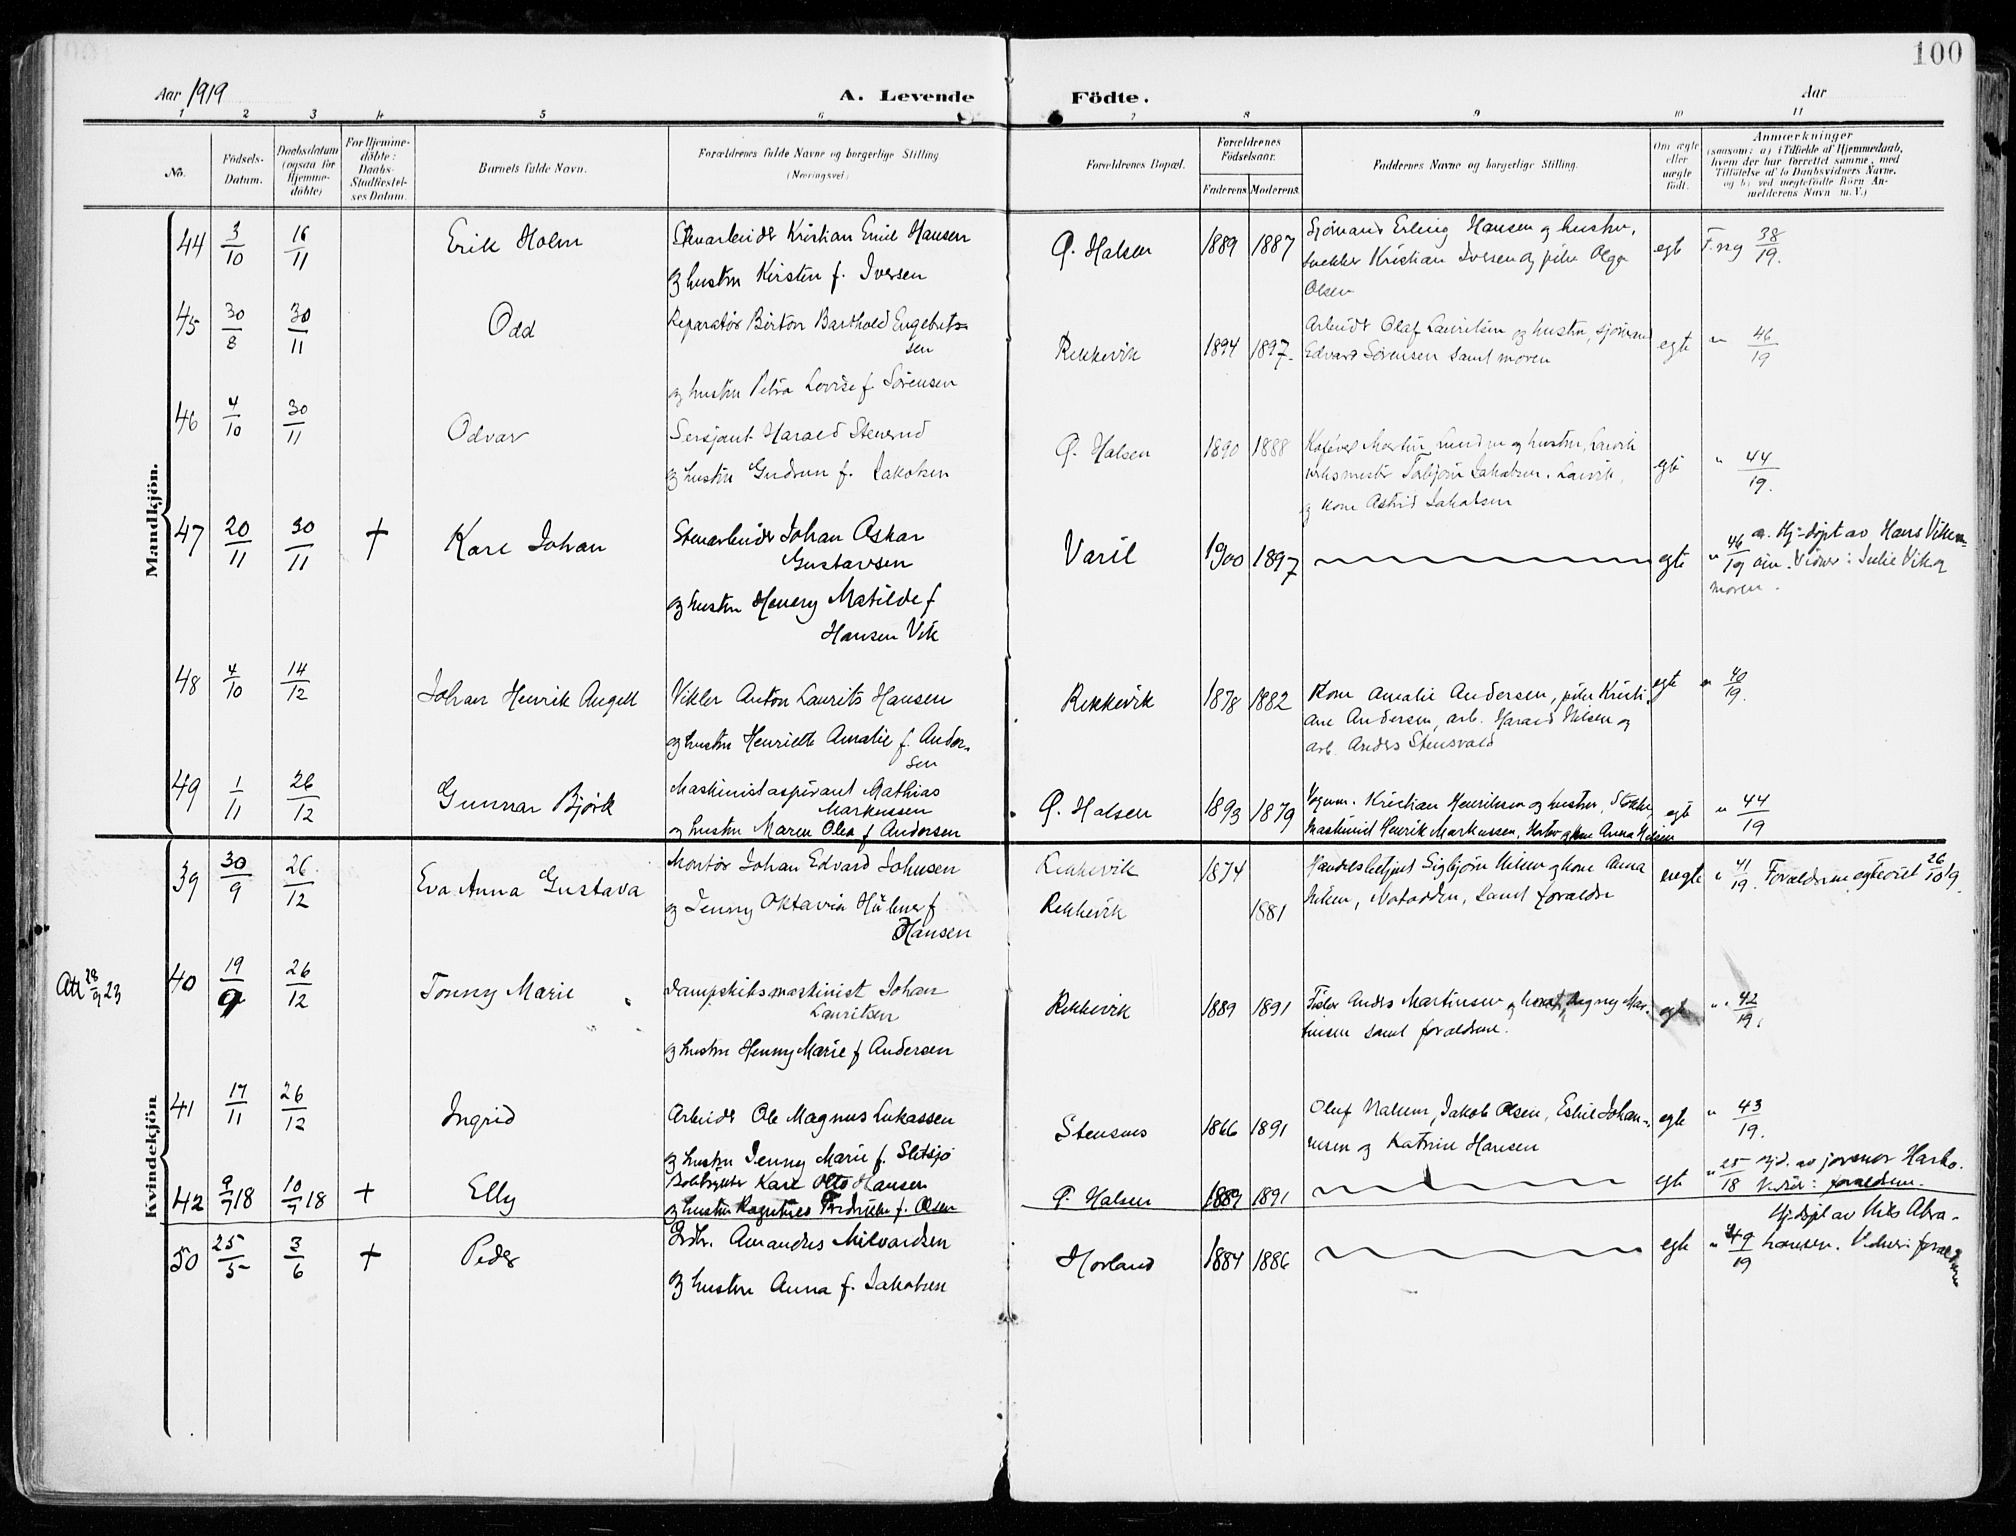 100
Aar 1919
A. Levende Födte.
Aar
1 2 3 4 5 6 7 8 9 10 11
No.
Födsels-Datum.
Daabsdatum (ogsaa for Hjemmedöbte)
For Hjemmedöbte: Daabs-Stadfæstelses Datum.
Barnets fulde Navn.
Forældrenes fulde Navne og borgerlige Stilling
(Næringsvei)
Forældrenes Bopæl.
Forældrenes Födselsaar.
Faderens Moderens.
Faddernes Navne og borgerlige Stilling.
Om ægte eller uægte födt.
Anmærkninger
(saasom: a) i Tilfælde af Hjemmedaab, hvem der har forrettet samme, med Tilföielse af to Daabsvidners Navne. og b) ved uægtefödte Börn Anmelderens Navn m. V.)
Mandkjön.
44 3/10 16/11 Erik Holm
Kristian Emil Hansen
og hustru Kirsten f. Iversen
Ø. Halsen 1889 1887
Sjømand Erling Hansen og hustru,
Kristian Iversen og pike Olga
Olsen
egte 38/19.
45 30/8 30/11 Odd
Reparatør Birton Barthold Engebret-
sen
og hustru Petra Lovise f. Sørensen
Rekkevik 1894 1897.
Arbeider Olaf Lauritsen og hustru, sjømand
Edvard Sørensen samt moren
egte " 46/19
46 4/10 30/11 Odvar
Sersjant Harald Stensrud
og hustru Gudrun f. Jakobsen
Ø. Halsen 1890 1888
Martin og hustru, Larvik
Torbjørn Jakobsen, Larvik,
og kone Astrid Jakobsen
egte " 44/19.
47 20/11 30/11 + Karl Johan
Stenarbeider Johan Oskar
Gustavsen
og hustru Henny Matilde f
Hansen Vik
Varil 1900 1897
egte " 46/19 a. Hj-døpt av Hans
Vidner: Julie Vik og
moren.
48 4/10 14/12 Johan Henrik Angell
Vikler Anton Laurits Hansen
og hustru Henriette Amalie f. Ander-
sen
Rekkevik 1878 1882
Kone Amalie Andersen, pike Kristi-
ane Andersen, arb. Harald Nilsen og
arb. Anders Stensvold
egte " 40/19.
49 1/11 26/12 Gunnar Bjørk
Maskinistaspirant Mathias
Markussen
og hustru Maren Olea f Andersen
Ø. Halsen 1893 1879
Kristian Henriksen og hustru, Stokke,
maskinist Henrik Markussen, og kone Anna Nilsen
egte " 44/19
Kvindekjön
39 30/9 26/12 Eva Anna Gustava
Montør Johan Edvard Johnsen
og Jenny Oktavia Hübner f
Hansen
Rekkevik 1874
Rekkevik 1881
Handelsbetjent Sigbjørn Nilsen og kone Anna
Nilsen, Notodden, samt forældre
uegte " 41/19. Forældrene egteviet 26/10 19.
Att 28/9 23
40 19/9 26/12 Tonny Marie
Dampskibsmaskinist Johan
Lauritsen
og hustru Henny Marie f Andersen
Rekkevik 1889 1891
Anders Martinsen og Dagny Mar-
tinsen samt forældrene.
egte " 42/19.
41 17/11 26/12 Ingrid
Arbeider Ole Magnus Lukassen
og hustru Jenny Marie f. Sletsjø
Stensnes 1866 1891
Oluf Jakob Olsen, Eskil Johan-
nesen og Katrine Hansen
egte " 43/19.
42 9/7 18 10/7 18 + Elly
Karl Otto Hansen
og hustru f. Olsen
Ø. Halsen 1889 1891
egte " 25/18 Hjd. av jormor
Vidner: forældrene.
50 25/5 3/6 + Peder
Amandus Milvardsen
og hustru Anna f. Jakobsen
Hovland 1884 1886
egte " 49/19 Hj-døpt av Nils Abra-
hamsen. Vidner: forældrene